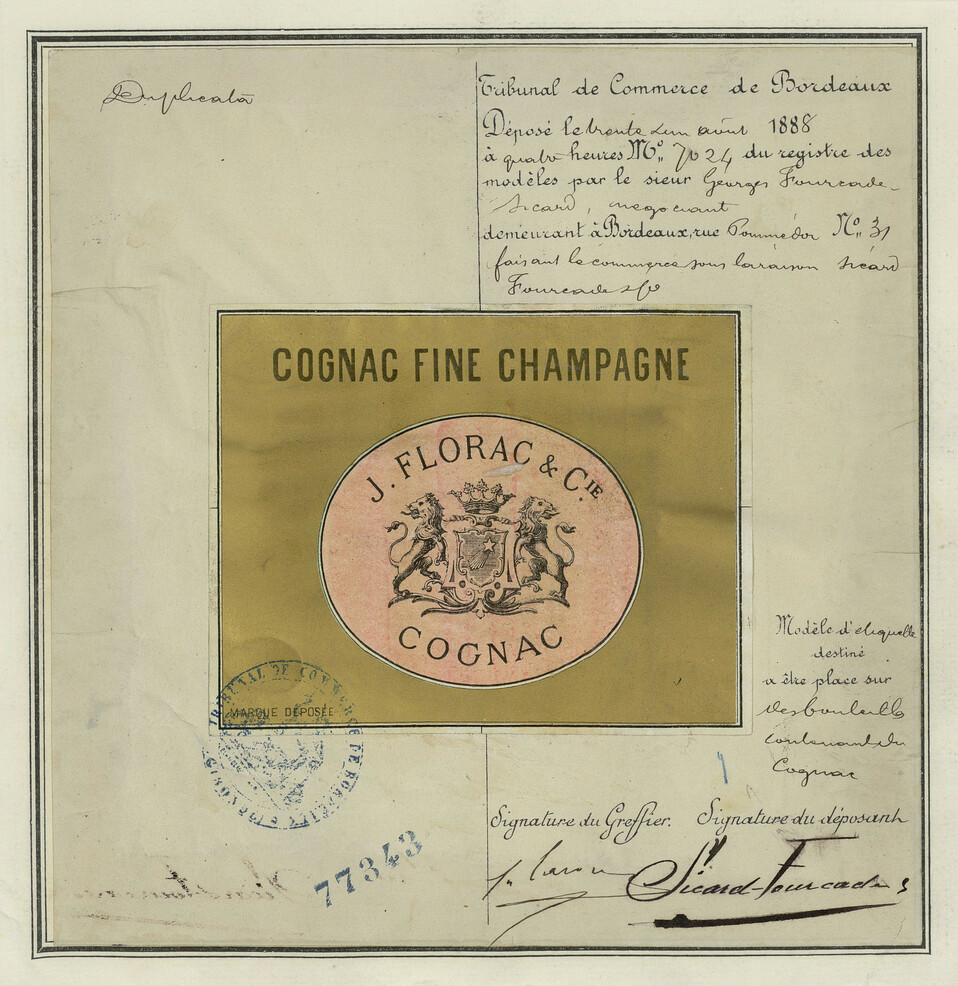 Duplicata
Tribunal de Commerce de Bordeaux
Déposé le trente un août 1888
à quatre heures No 7024 du registre des
modèles par le sieur Georges Fourcade-
Sicard, negociant
demeurant à Bordeaux, rue Pomme d'or No 31
faisant le commerce sous la raison Sicard
Fourcade &
COGNAC FINE CHAMPAGNE
J. FLORAC & CIE
COGNAC
MARQUE DÉPOSÉE
TRIBUNAL DE COMMERCE DE BORDEAUX
Modèle d'etiquette
destiné
a être place sur
des bouteilles
contenant du
Cognac
Signature du Greffier. Signature du déposant
Sicard-Fourcade
77343